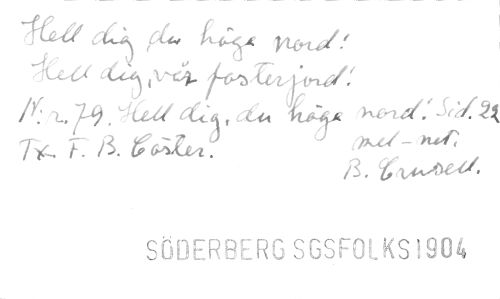 Hell dig du höga nord!
Hell dig, vår fosterjord!
N:r. 79. Hell dig, du höga nord! Sid. 22
Tx. F. B. Cöster. mel-not.
B. Crusell.
SÖDERBERG SGSFOLKS1904